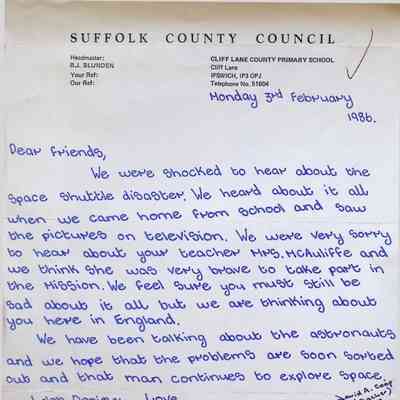 SUFFOLK COUNTY COUNCIL
Headmaster:
B.J. BLUNDEN
Your Ref:
Our Ref:
CLIFF LANE COUNTY PRIMARY SCHOOL
Cliff Lane
IPSWICH, IP3 0PJ
Telephone No. 51604
Monday 3rd February
1986.
Dear Friends,
We were shocked to hear about the
space shuttle disaster. We heard about it all
when we came home from school and saw
the pictures on television. We were very sorry
to hear about your teacher Mrs. McAuliffe and
we think she was very brave to take part in
the Mission. We feel sure you must still be
sad about it all but we are thinking about
you here in England.
We have been talking about the astronauts
and we hope that the problems are soon sorted
out and that man continues to explore space.
Love
David A.